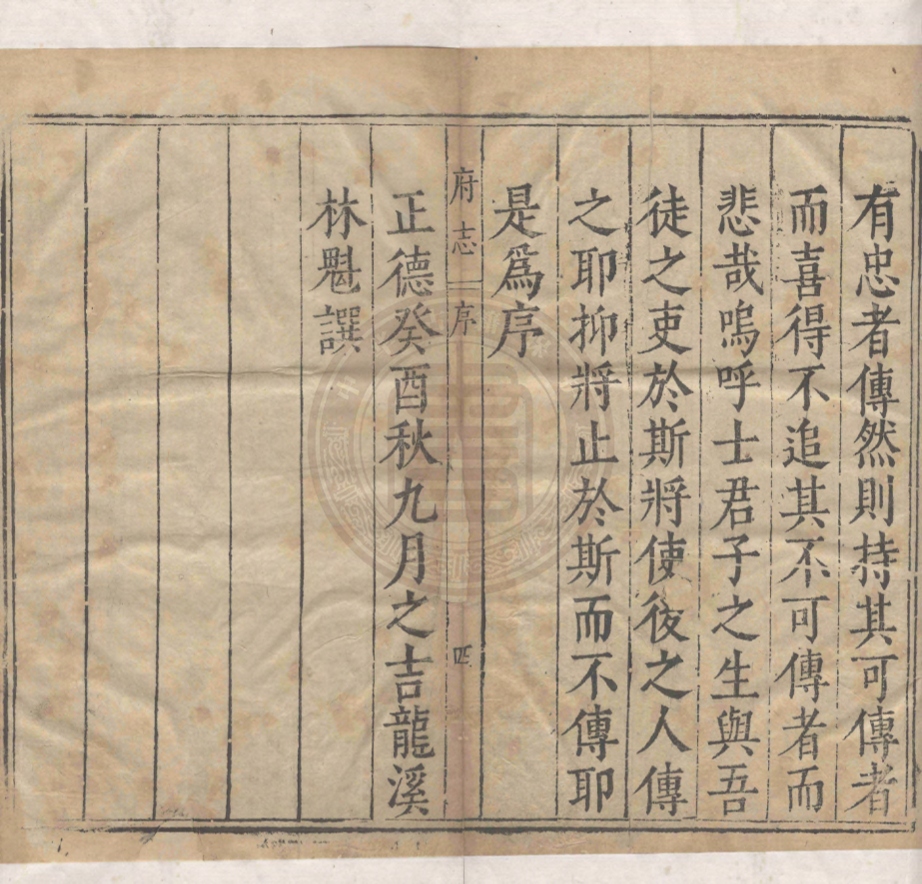 有忠者傳然則持其可傳者
而喜得不追其不可傳者而
悲哉嗚呼士君子之生與吾
徒之吏於斯將使後之人傳
之耶抑將止於斯而不傳耶
是爲序
府志 序 四
正德癸酉秋九月之吉龍溪
林魁譔